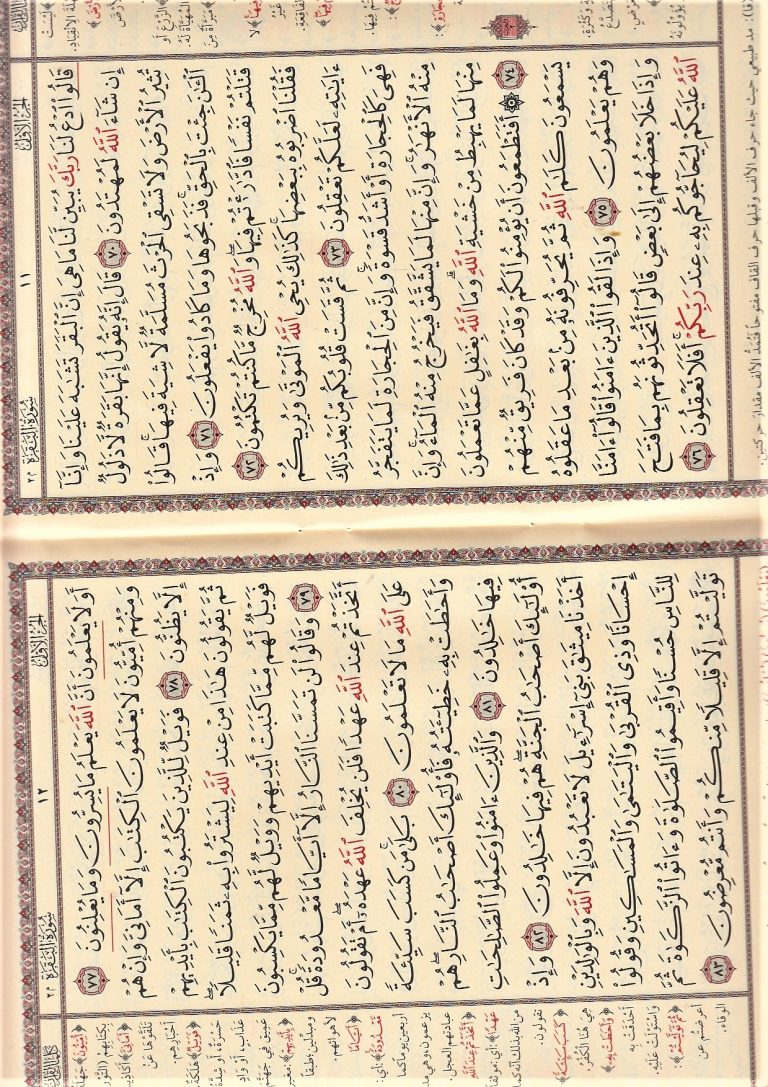 سُورَةُ البَقَرَةِ ٢
١١
الجُزْءُ الأَوَّلُ
قَالُوا۟ ٱدْعُ لَنَا رَبَّكَ يُبَيِّن لَّنَا مَا هِىَ إِنَّ ٱلْبَقَرَ تَشَٰبَهَ عَلَيْنَا وَإِنَّآ
إِن شَآءَ ٱللَّهُ لَمُهْتَدُونَ ٧٠ قَالَ إِنَّهُۥ يَقُولُ إِنَّهَا بَقَرَةٌ لَّا ذَلُولٌ
تُثِيرُ ٱلْأَرْضَ وَلَا تَسْقِى ٱلْحَرْثَ مُسَلَّمَةٌ لَّا شِيَةَ فِيهَا ۚ قَالُوا۟
ٱلْـَٰٔنَ جِئْتَ بِٱلْحَقِّ ۚ فَذَبَحُوهَا وَمَا كَادُوا۟ يَفْعَلُونَ ٧١ وَإِذْ
قَتَلْتُمْ نَفْسًا فَٱدَّٰرَْٰٔتُمْ فِيهَا ۖ وَٱللَّهُ مُخْرِجٌ مَّا كُنتُمْ تَكْتُمُونَ ٧٢
فَقُلْنَا ٱضْرِبُوهُ بِبَعْضِهَا ۚ كَذَٰلِكَ يُحْىِ ٱللَّهُ ٱلْمَوْتَىٰ وَيُرِيكُمْ
ءَايَٰتِهِۦ لَعَلَّكُمْ تَعْقِلُونَ ٧٣ ثُمَّ قَسَتْ قُلُوبُكُم مِّنۢ بَعْدِ ذَٰلِكَ
فَهِىَ كَٱلْحِجَارَةِ أَوْ أَشَدُّ قَسْوَةً ۚ وَإِنَّ مِنَ ٱلْحِجَارَةِ لَمَا يَتَفَجَّرُ
مِنْهُ ٱلْأَنْهَٰرُ ۚ وَإِنَّ مِنْهَا لَمَا يَشَّقَّقُ فَيَخْرُجُ مِنْهُ ٱلْمَآءُ ۚ وَإِنَّ
مِنْهَا لَمَا يَهْبِطُ مِنْ خَشْيَةِ ٱللَّهِ ۗ وَمَا ٱللَّهُ بِغَٰفِلٍ عَمَّا تَعْمَلُونَ
٧٤ ۞ أَفَتَطْمَعُونَ أَن يُؤْمِنُوا۟ لَكُمْ وَقَدْ كَانَ فَرِيقٌ مِّنْهُمْ
يَسْمَعُونَ كَلَٰمَ ٱللَّهِ ثُمَّ يُحَرِّفُونَهُۥ مِنۢ بَعْدِ مَا عَقَلُوهُ
وَهُمْ يَعْلَمُونَ ٧٥ وَإِذَا لَقُوا۟ ٱلَّذِينَ ءَامَنُوا۟ قَالُوٓا۟ ءَامَنَّا
وَإِذَا خَلَا بَعْضُهُمْ إِلَىٰ بَعْضٍ قَالُوٓا۟ أَتُحَدِّثُونَهُم بِمَا فَتَحَ
ٱللَّهُ عَلَيْكُمْ لِيُحَآجُّوكُم بِهِۦ عِندَ رَبِّكُمْ ۚ أَفَلَا تَعْقِلُونَ ٧٦
مد طبيعي حيث جاء حرف الألف وقبلها حرف القاف مفتوحاً فتُمَدُّ الألف مقدار حركتين.
سُورَةُ البَقَرَةِ ٢
١٢
الجُزْءُ الأَوَّلُ
أَوَلَا يَعْلَمُونَ أَنَّ ٱللَّهَ يَعْلَمُ مَا يُسِرُّونَ وَمَا يُعْلِنُونَ ٧٧
وَمِنْهُمْ أُمِّيُّونَ لَا يَعْلَمُونَ ٱلْكِتَٰبَ إِلَّآ أَمَانِىَّ وَإِنْ هُمْ
إِلَّا يَظُنُّونَ ٧٨ فَوَيْلٌ لِّلَّذِينَ يَكْتُبُونَ ٱلْكِتَٰبَ بِأَيْدِيهِمْ
ثُمَّ يَقُولُونَ هَٰذَا مِنْ عِندِ ٱللَّهِ لِيَشْتَرُوا۟ بِهِۦ ثَمَنًا قَلِيلًا ۖ
فَوَيْلٌ لَّهُم مِّمَّا كَتَبَتْ أَيْدِيهِمْ وَوَيْلٌ لَّهُم مِّمَّا يَكْسِبُونَ
٧٩ وَقَالُوا۟ لَن تَمَسَّنَا ٱلنَّارُ إِلَّآ أَيَّامًا مَّعْدُودَةً ۚ قُلْ
أَتَّخَذْتُمْ عِندَ ٱللَّهِ عَهْدًا فَلَن يُخْلِفَ ٱللَّهُ عَهْدَهُۥٓ ۖ أَمْ تَقُولُونَ
عَلَى ٱللَّهِ مَا لَا تَعْلَمُونَ ٨٠ بَلَىٰ مَن كَسَبَ سَيِّئَةً
وَأَحَٰطَتْ بِهِۦ خَطِيٓـَٔتُهُۥ فَأُو۟لَٰٓئِكَ أَصْحَٰبُ ٱلنَّارِ ۖ هُمْ
فِيهَا خَٰلِدُونَ ٨١ وَٱلَّذِينَ ءَامَنُوا۟ وَعَمِلُوا۟ ٱلصَّٰلِحَٰتِ
أُو۟لَٰٓئِكَ أَصْحَٰبُ ٱلْجَنَّةِ ۖ هُمْ فِيهَا خَٰلِدُونَ ٨٢ وَإِذْ
أَخَذْنَا مِيثَٰقَ بَنِىٓ إِسْرَٰٓءِيلَ لَا تَعْبُدُونَ إِلَّا ٱللَّهَ وَبِٱلْوَٰلِدَيْنِ
إِحْسَانًا وَذِى ٱلْقُرْبَىٰ وَٱلْيَتَٰمَىٰ وَٱلْمَسَٰكِينِ وَقُولُوا۟
لِلنَّاسِ حُسْنًا وَأَقِيمُوا۟ ٱلصَّلَوٰةَ وَءَاتُوا۟ ٱلزَّكَوٰةَ ثُمَّ
تَوَلَّيْتُمْ إِلَّا قَلِيلًا مِّنكُمْ وَأَنتُم مُّعْرِضُونَ ٨٣